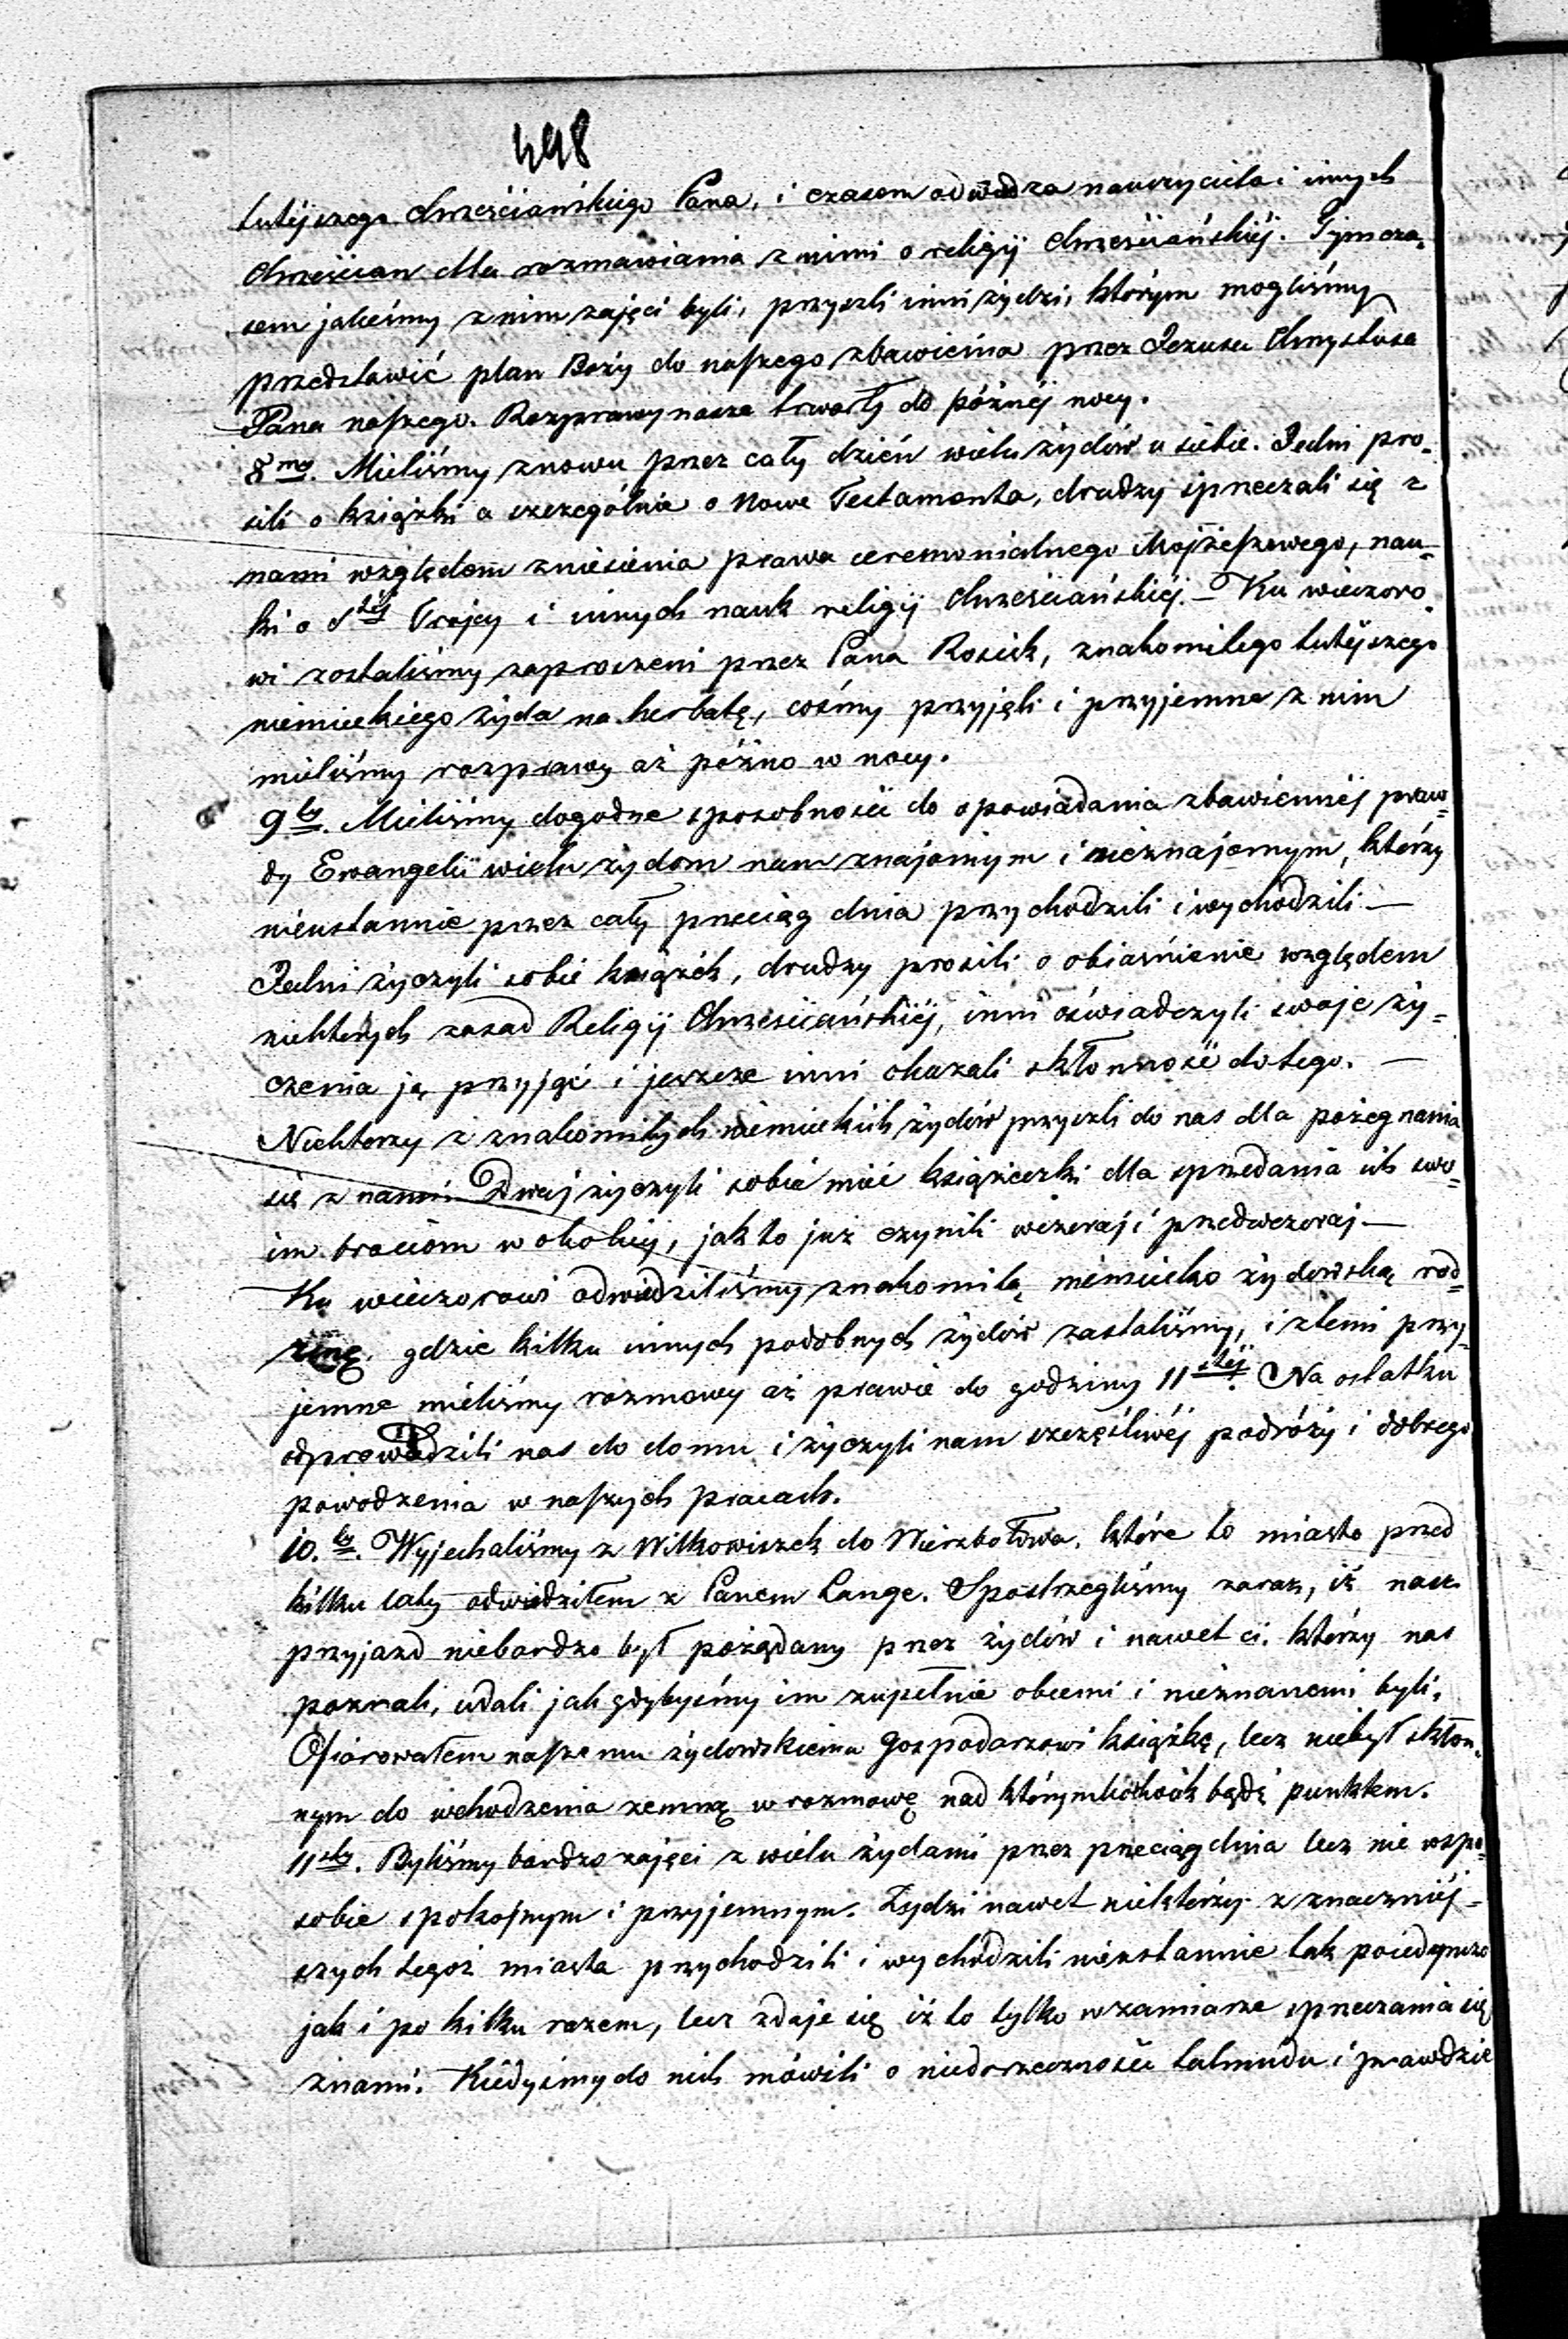 498
tutéjszego chrześciańskiego Pana, i czasem odwiedza nauczyciela i innych
Chrześcian dla rozmawiania z nimi o religij chrześciańskiéj. Tymcza-
sem jakeśmy z nim zajęci byli, przyszli inni żydzi, którym mogliśmy
przedstawić plan Boży do naszego zbawienia przez Jezusa Chrystusa
Pana naszego. Rozprawy nasze trwały do późnéj nocy.
8mo. Mieliśmy znowu przez cały dzień wielu żydów u siebie. Jedni pro-
sili o książki a szczególnie o Nowe Testamenta, drudzy sprzeczali się z
nami względem zniesienia prawa ceremonialnego Mojżeszowego, nau-
ki o Stéj Trójcy i innych nauk religij Chrześciańskiéj. – Ku wieczoro-
wi zostaliśmy zaproszeni przez Pana Rosick, znakomitego tutéjszego
niemieckiego żyda na herbatę, cośmy przyjęli i przyjemne z nim
mieliśmy rozprawy aż późno w nocy.
9to. Mieliśmy dogodne sposobności do opowiadania zbawiennéj praw-
dy Ewangelii wielu żydom nam znajomym i nieznajomym, którzy
nieustannie przez cały przeciąg dnia przychodzili i wychodzili –
Jedni życzyli sobie książek, drudzy prosili o obiaśnienie względem
niektórych zasad Religij Chrześciańskiéj, inni oświadczyli swoje ży-
czenia ją przyjąć i jeszcze inni okazali skłonność do tego. –
Niektorzy z znakomitych niemieckich żydów przyszli do nas dla pożegnania
się z nami. Dwaj życzyli sobie mieć książeczki dla sprzedania ich swo-
im braciom w okolicy, jak to już czynili wczoraj i przedwczoraj –
Ku wieczorowi odwiedziliśmy znakomitą niemiecko żydowską rod-
zinę, gdzie kilku innych podobnych żydów zastaliśmy, i z temi przy-
jemne mieliśmy rozmowy aż prawie do godziny 11stéj. Na ostatku
odprowadzili nas do domu i życzyli nam szczęśliwéj podróży i dobrego
powodzenia w naszych pracach.
10.to. Wyjechaliśmy z Wilkowiszek do Wierzbołowa, które to miasto przed
kilku laty odwiedziłem z Panem Lange. Spostrzegliśmy zaraz, iż nasz
przyjazd niebardzo był pożądany przez żydów i nawet ci, którzy nas
poznali, udali jak gdybyśmy im zupełnie obcemi i nieznanemi byli.
Ofiarowałem naszemu żydowskiemu gospodarzowi książkę, lecz niebył skłon-
nym do wchodzenia zemną w rozmowę nad którymkolwiek bądź punktem.
11sto. Byliśmy bardzo zajęci z wielu żydami przez przeciąg dnia lecz nie wspo-
sobie spokojnym i przyjemnym. Żydzi nawet niektórzy z znaczniéj-
szych tegoż miasta przychodzili i wychodzili nieustannie tak poiedynczo
jak i po kilku razem, lecz zdaje się iż to tylko w zamiarze sprzeczania się
znami. Kiedyśmy do nich mówili o niedorzeczności talmudu i prawdzie